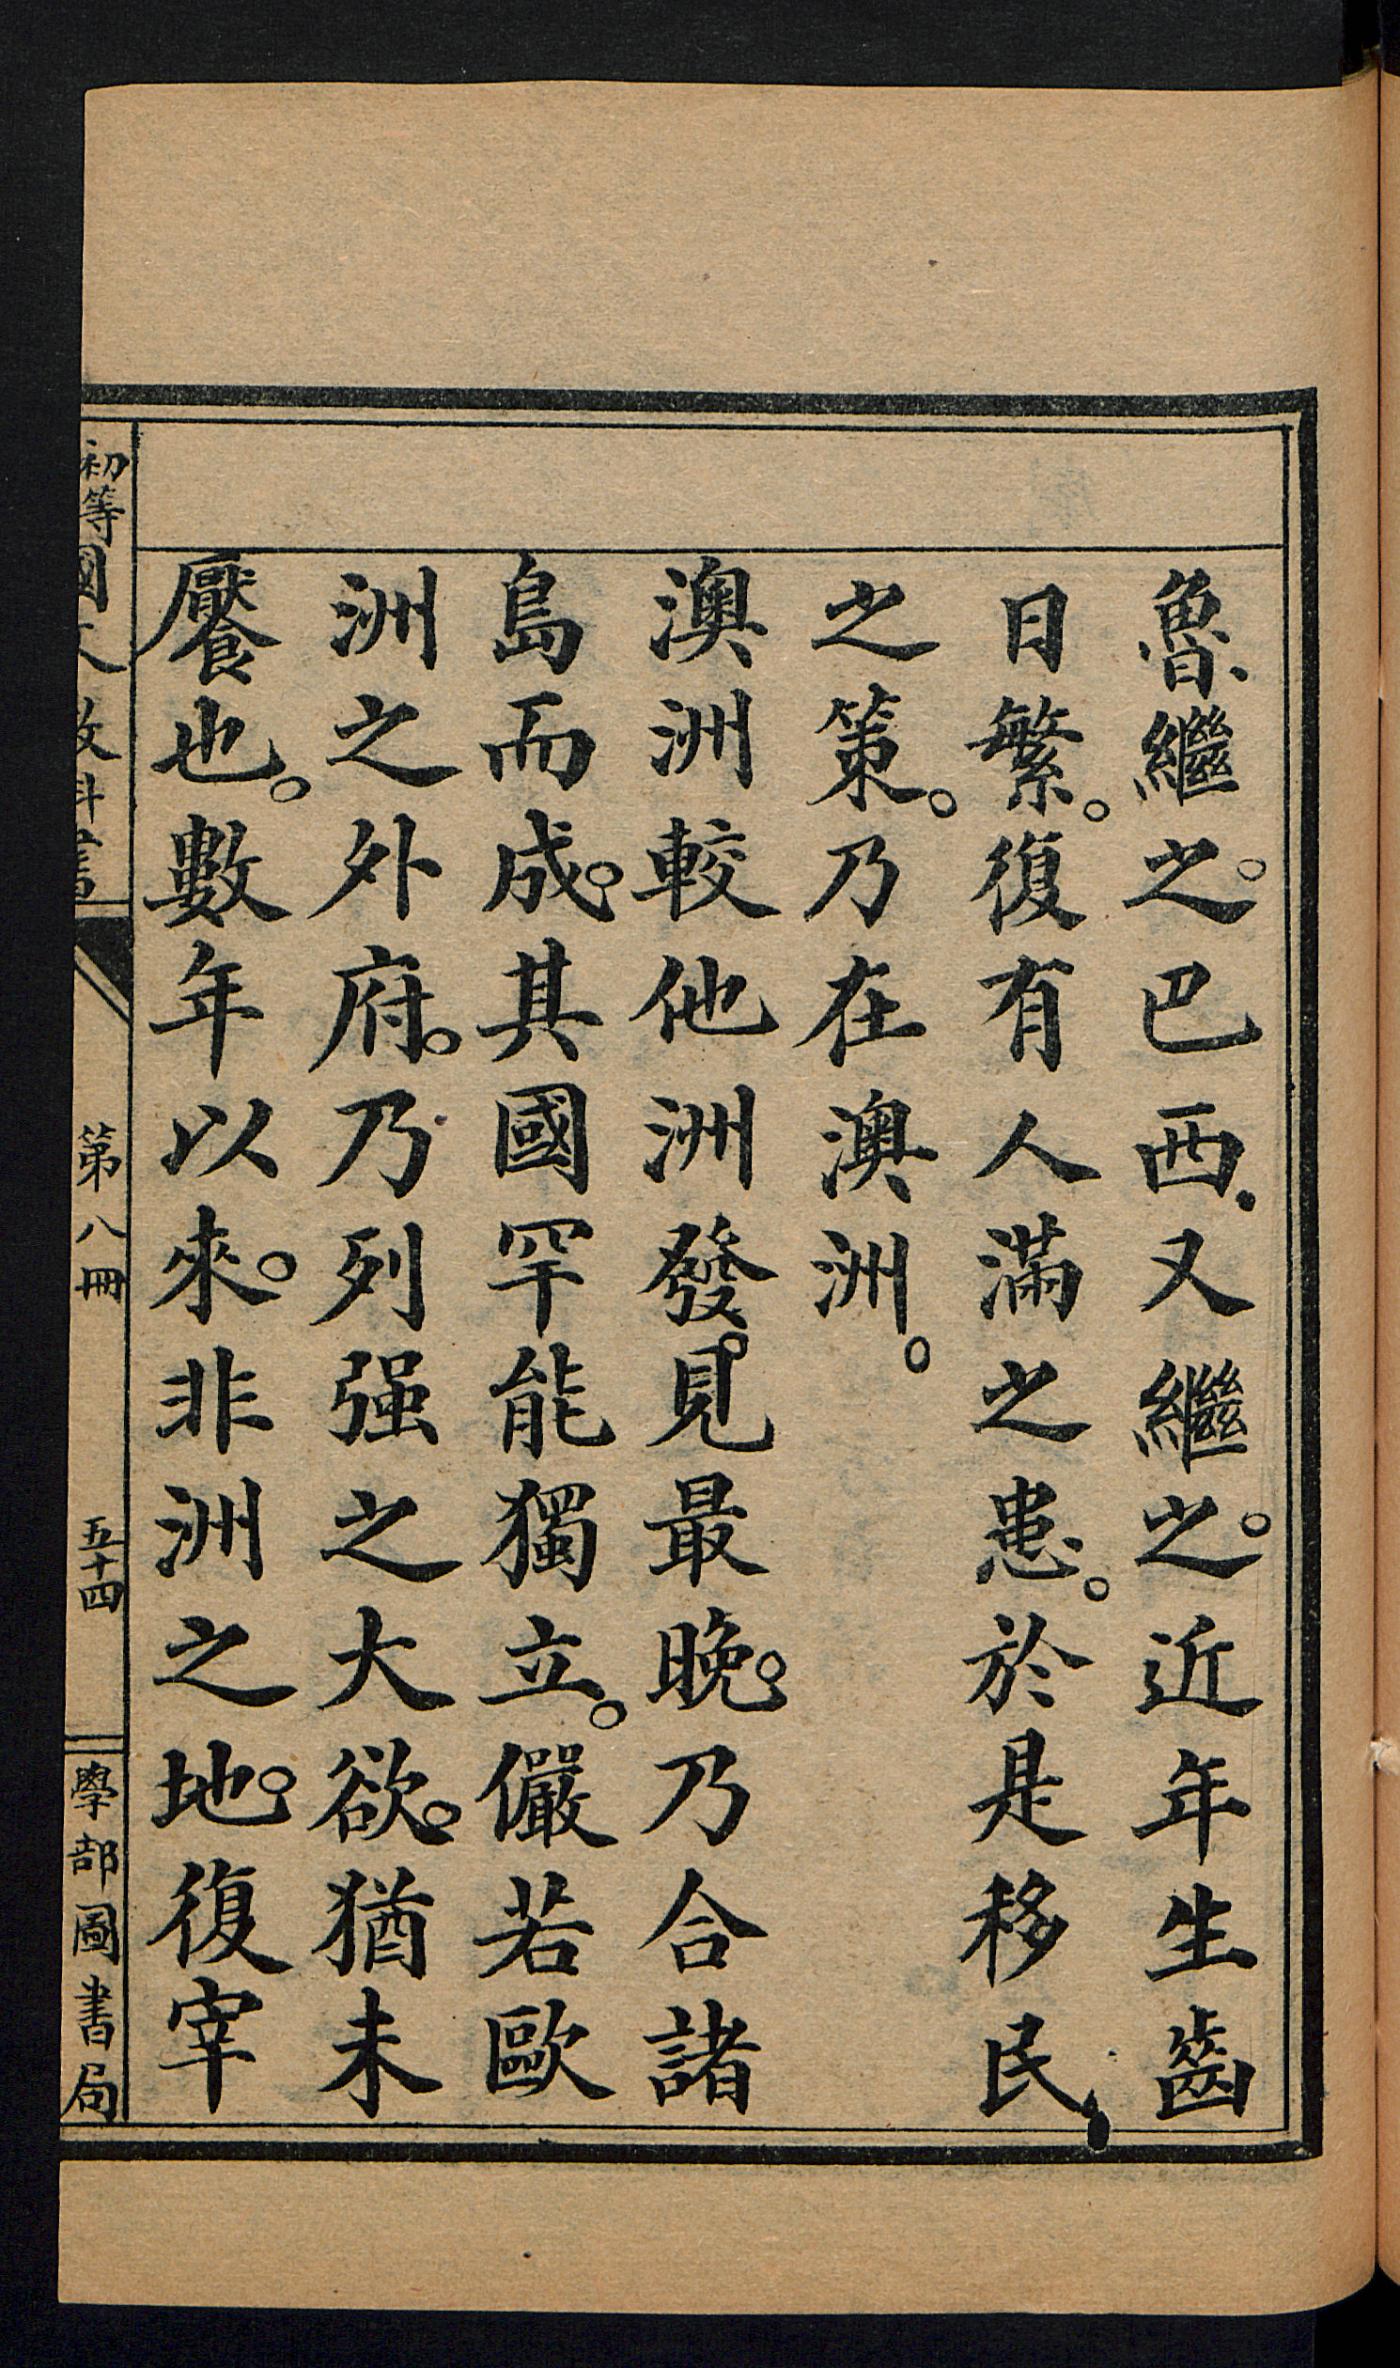 魯繼之。巴西.又繼之。近年生齒
日繁。復有人滿之患。於是移民
之策。乃在澳洲。
澳洲較他洲發。見最晚。乃合諸
島而成。其國罕能獨立。儼若歐
洲之外府。乃列强之大欲。猶未
饜也。數年以來。非洲之地。復宰
初等國文教科書 第八冊 五十四 學部圖書局